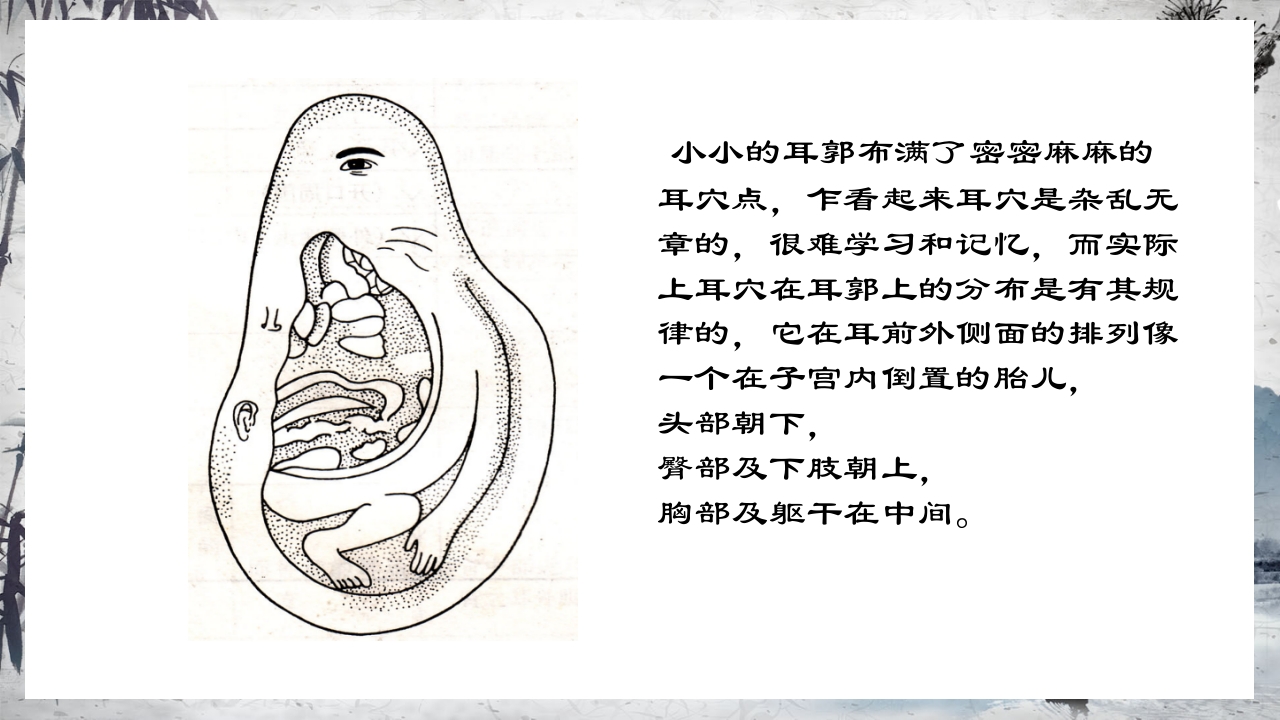 小小的耳郭布满了密密麻麻的
耳穴点，乍看起来耳穴是杂乱无
章的，很难学习和记忆，而实际
上耳穴在耳郭上的分布是有其规
律的，它在耳前外侧面的排列像
一个在子宫内倒置的胎儿，
头部朝下，
臀部及下肢朝上，
胸部及躯干在中间。